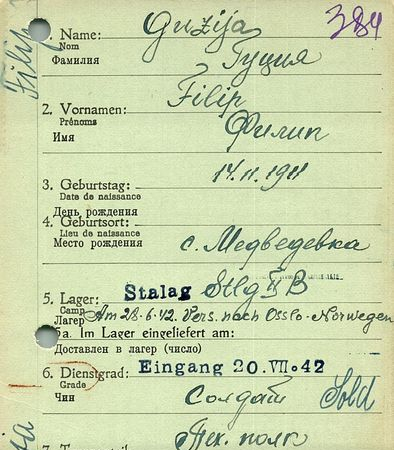 384
Filip
1. Name: Guzija
Nom
Фамилия Гуция
2. Vornamen: Filip
Prénoms
Имя Филип
3. Geburtstag: 14.11.1911
Date de naissance
День рождения
4. Geburtsort:
Lieu de naissance
Место рождения с. Медведевка
5. Lager: Stalag Stlg II B
Camp
Лагерь Am 28.6.42 Vers. nach Osslo-Norwegen
5a. Im Lager eingeliefert am:
Доставлен в лагер (число)
6. Dienstgrad: Eingang 20.VII.42
Grade
Чин Солдат Sold
Пех. полк